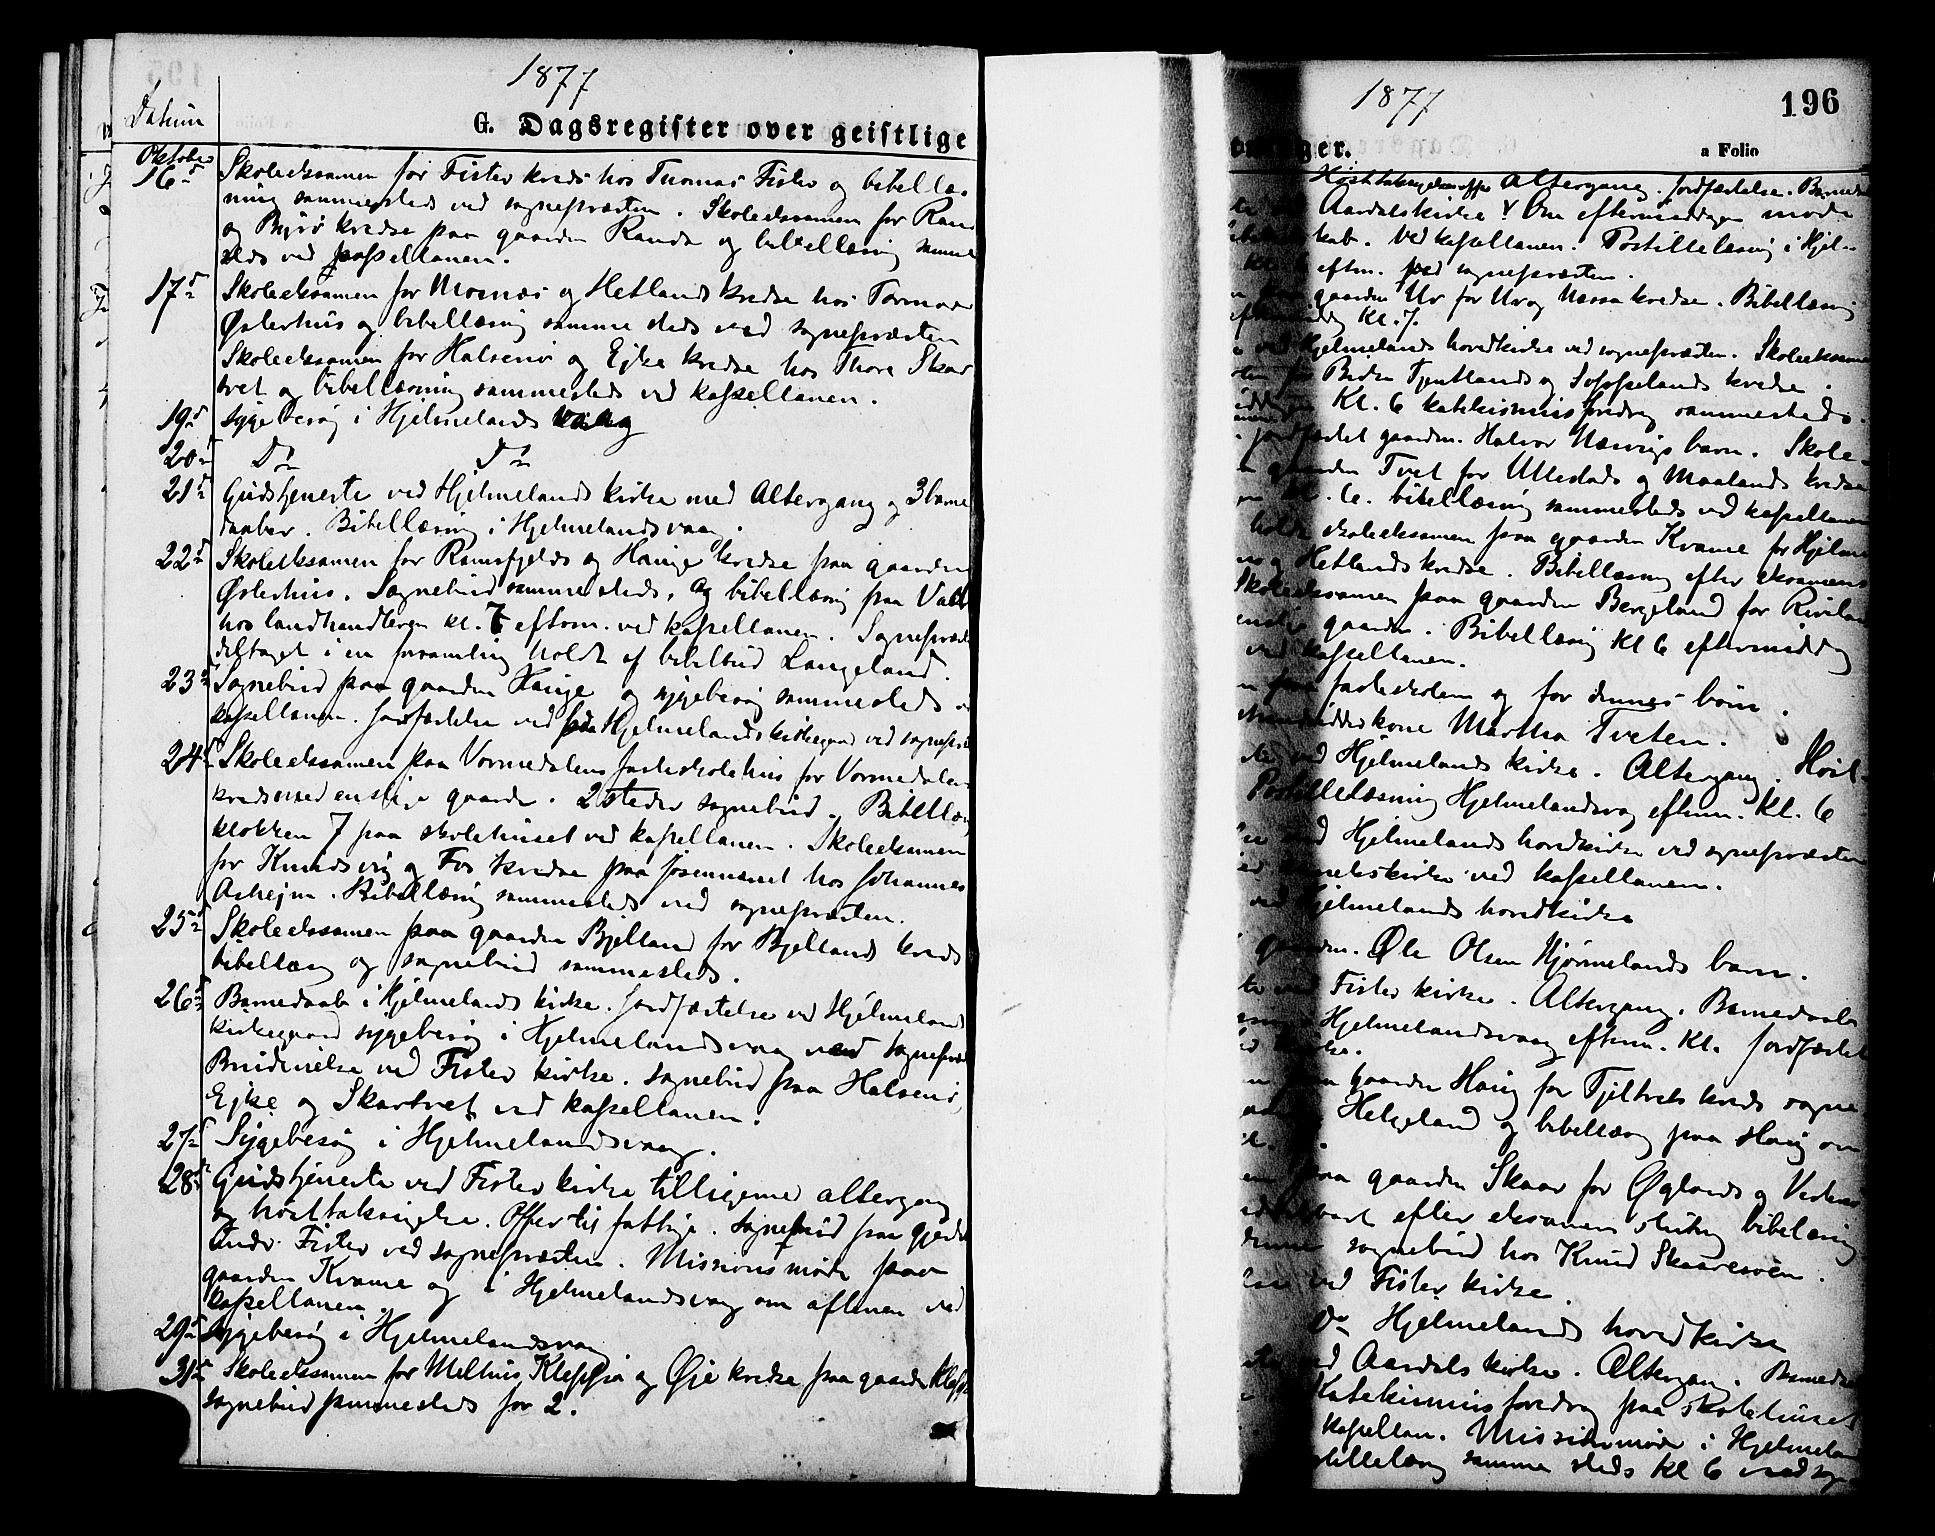 1877
Datum
G. Dagsregister over geistlige
Oktober
16de Skoleeksamen for Fister kreds hos Thomas Fister og bibellæs-
ning sammesteds ved sognepræsten. Skoleeksamen for Rand
og Byrø kredse paa gaarden Randa og bibellæsning samme
steds ved kapellanen.
17de Skoleeksamen for Mosnæs og Hetlands kredse hos Tormod
Østerhus og bibellæsning sammesteds ved sognepræsten
Skoleeksamen for Halsenø og Ejke kredse hos Thore Skar
tvet og bibellæsning sammesteds ved kapellanen.
19de Sygebesøg i Hjelmelands vaag
20de Do Do
21de Gudstjeneste ved Hjelmelands kirke med Altergang og 3 barne
daaber. Bibellæsning i Hjelmelandsvaag.
22de Skoleeksamen for Ramsfjelds og Hauge kredse paa gaarden
Østerhus. Sognebud sammesteds, og bibellæsning paa
hos landhandleren kl. 7 efterm. ved kapellanen. Sognepræsten
deltaget i en forsamling holdt af bibelbud Langeland.
23de Sognebud paa gaarden Hauge og sygebesøg sammesteds v
kapellanen. Jordfæstelse ved Hjelmelands kirkegaard ved sognepræ
24de Skoleeksamen paa Vormedalens fasteskolehus for Vormedalens
kreds med enslige gaarde. 2 steder sognebud. Bibellæs
klokken 7 paa skolehuset ved kapellanen. Skoleeksamen
for Knudsvig og Fos kredse paa Jøsenneset hos Johannes
Ashejm. Bibellæsning sammesteds ved sognepræsten.
25de Skoleeksamen paa gaarden Bjelland for Bjellands kreds
bibellæsng og sognebud sammesteds.
26de Barnedaab i Hjelmelands kirke. Jordfæstelse ved Hjelmeland
kirkegaard sygebesøg i Hjelmelandsvaag ved sognepræ
Brudevielse ved Fister kirke. sognebud paa Halsenø,
Ejke og Skartvet ved kapellanen.
27de Sygebesøg i Hjelmelandsvaag.
28de Gudstjeneste ved Fister kirke tilligemed altergang
og høsttaksigelse. Offer til fattige. Sognebud paa
Fister ved sognepræsten. Missionsmøde paa
gaarden Kvame og i Hjelmelandsvaag om aftenen ved
kapellanen.
29de Sygebesøg i Hjelmelandsvaag
31te Skoleeksamen for Melhus, Kleppa og Øje kredse paa gaarden Klep
sognebud sammesteds for 2.
1877
196
ger.
a Folio
Altergang. Jordfæstelse. Barneda
Aardalskirke. Om eftermiddagen møde
kab. ved kapellanen. Postillelæsning i Hjel-
efterm. ved sognepræsten.
gaarden Ur for Ur og Nessa kredse. Bibellæsning
Kl. 7.
ved Hjelmelands hovedkirke ved sognepræsten. Skoleeksamen
Tjentlands og kredse.
Kl. 6 katekismusforedrag sammesteds.
jordfæstet gaardm. Halvor barn. Skole-
gaarden Tvet for Ullestads og Maalands kredse
Kl. 6. bibellæsning sammesteds ved kapellanen
holdt skoleeksamen paa gaarden Kvame for Hjelm
og Hetlands kredse. Bibellæsning efter eksamens
Skoleeksamen paa gaarden Bergeland for
enslige gaarde. Bibellæsning kl 6 eftermiddag
ved kapellanen.
fasteskolen og for dennes børn.
kone Martha Tveten.
ved Hjelmelands kirke. Altergang. Høst-
Postillelæsning Hjelmelandsvaag efterm. Kl. 6
ved Hjelmelands hovedkirke ved sognepræsten
kirke ved kapellanen.
ved Hjelmelands hovedkirke
gaardm. Ole Olsen Hjørmelands barn.
ved Fister kirke. Altergang. Barnedaab
Hjelmelandsvaag efterm. Kl. Jordfæstet
kirke.
paa gaarden Haug for Tjeltveits kreds sogne
Helgeland og bibellæsng paa Haug om
paa gaarden Skaar for Øglænds og
efter eksamens slutng bibellæsning
sognebud hos Knud Skaaresøen.
ved Fister kirke.
Do Hjelmelands hovedkirke
ved Aardals kirke. Altergang. Barneda
Katekismusforedrag paa skolehuset
kapellan. Missionsmøde i Hjelmelan
tillelæsng sammesteds kl 6 ved sogn